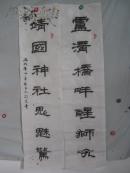 盧溝橋畔醒獅吼
靖國神社鬼魅驚